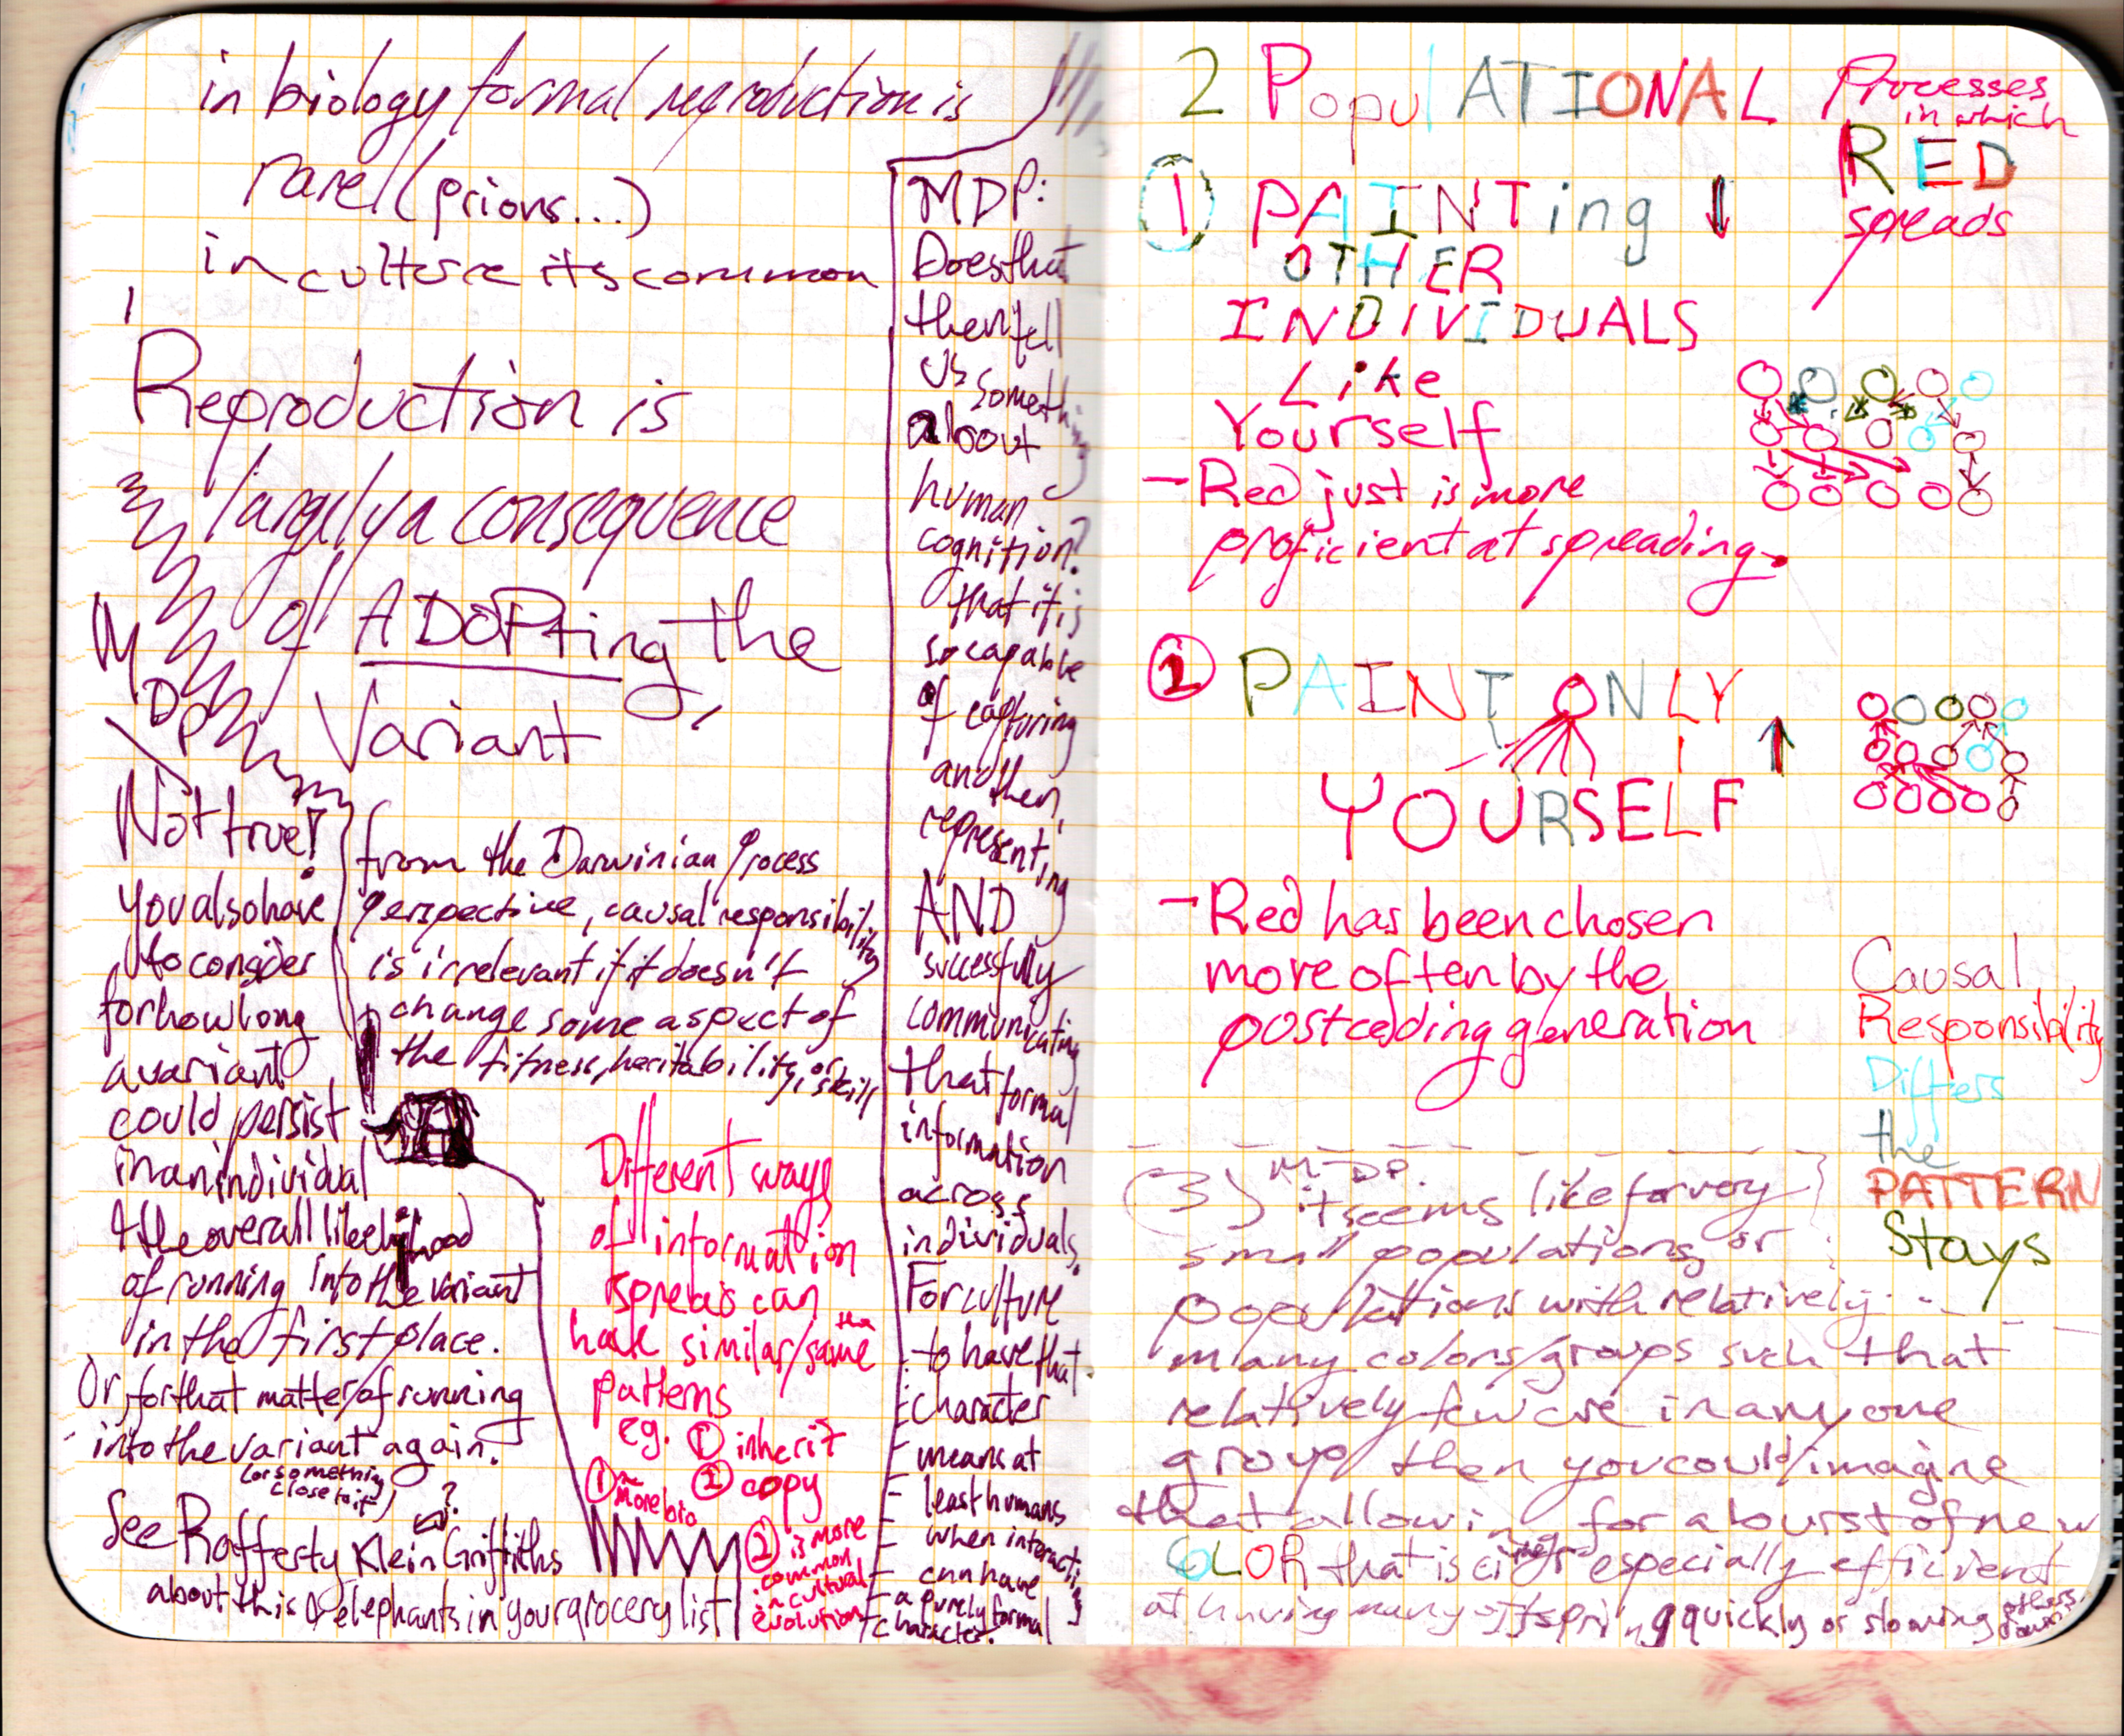 in biology formal reproduction is
rare (prions...)
in culture its common
Reproduction is
largelya consequence
of ADOPting the
Variant
MDP
Not true!
you also have
to consider
for how long
a variant
could persist
in an individual
& the overall likelihood
of running into the variant
in the first place.
Or, for that matter, of running
into the variant again.
(or something
close to it)
?
See Rafferty Klein Griffiths
about this & elephants in your grocery list
from the Darwinian Process
perspective, causal responsibility
is irrelevant if it doesn't
change some aspect of
the fitness, heritability, or skill
Different ways
of information
spread can
have similar/the same
patterns
eg. ① inherit
② copy
① more bio
② is more
common
in cultural
evolution
MDP:
Does that
then tell
us something
about
human
cognition?
that it is
so capable
of capturing
another,
representing
AND
successfully
communicating
that formal
information
across
individuals.
For culture
to have that
character
means at
least humans
when interacting
can have
a purely formal
character.
2 PopulATIONAL Processes
in which
RED
spreads
① PAINTing ↓
OTHER
INDIVIDUALS
Like
Yourself
- Red just is more
proficient at spreading.
② PAINT ONLY ↑
YOURSELF
- Red has been chosen
more often by the
postceding generation
Causal
Responsibility
Differs
the
PATTERN
Stays
(3) M-DP.
it seems like for very
small populations or
populations with relatively
many colors/groups such that
relatively few are in any one
group then you could imagine
that allowing for a burst of new
COLOR that is either especially efficient
at having many offspring quickly or slowing others down